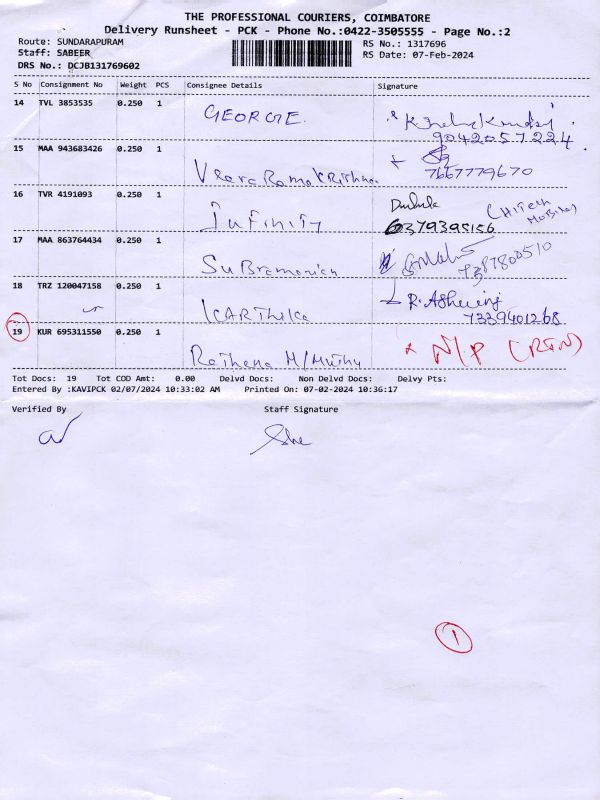 THE PROFESSIONAL COURIERS, COIMBATORE
Delivery Runsheet - PCK - Phone No.:0422-3505555 - Page No.:2
Route: SUNDARAPURAM RS No.: 1317696
Staff: SABEER RS Date: 07-Feb-2024
DRS No.: DCJB131769602
S No Consignment No Weight PCS Consignee Details Signature
14 TVL 3853535 0.250 1 GEORGE
9042057224
15 MAA 943683426 0.250 1 Veera Rama Krishnan
7667779670
16 TVR 4191093 0.250 1 Infinity (Hitech Mobiles)
6379395156
17 MAA 863764434 0.250 1 Subramanian 7387800510
18 TRZ 120047158 0.250 1 Karthika R.
7339401268
19 KUR 695311550 0.250 1 Rathena M/Muthu N/P (RTN)
Tot Docs: 19 Tot COD Amt: 0.00 Delvd Docs: Non Delvd Docs: Delvy Pts:
Entered By :KAVIPCK 02/07/2024 10:33:02 AM Printed On: 07-02-2024 10:36:17
Verified By Staff Signature
1